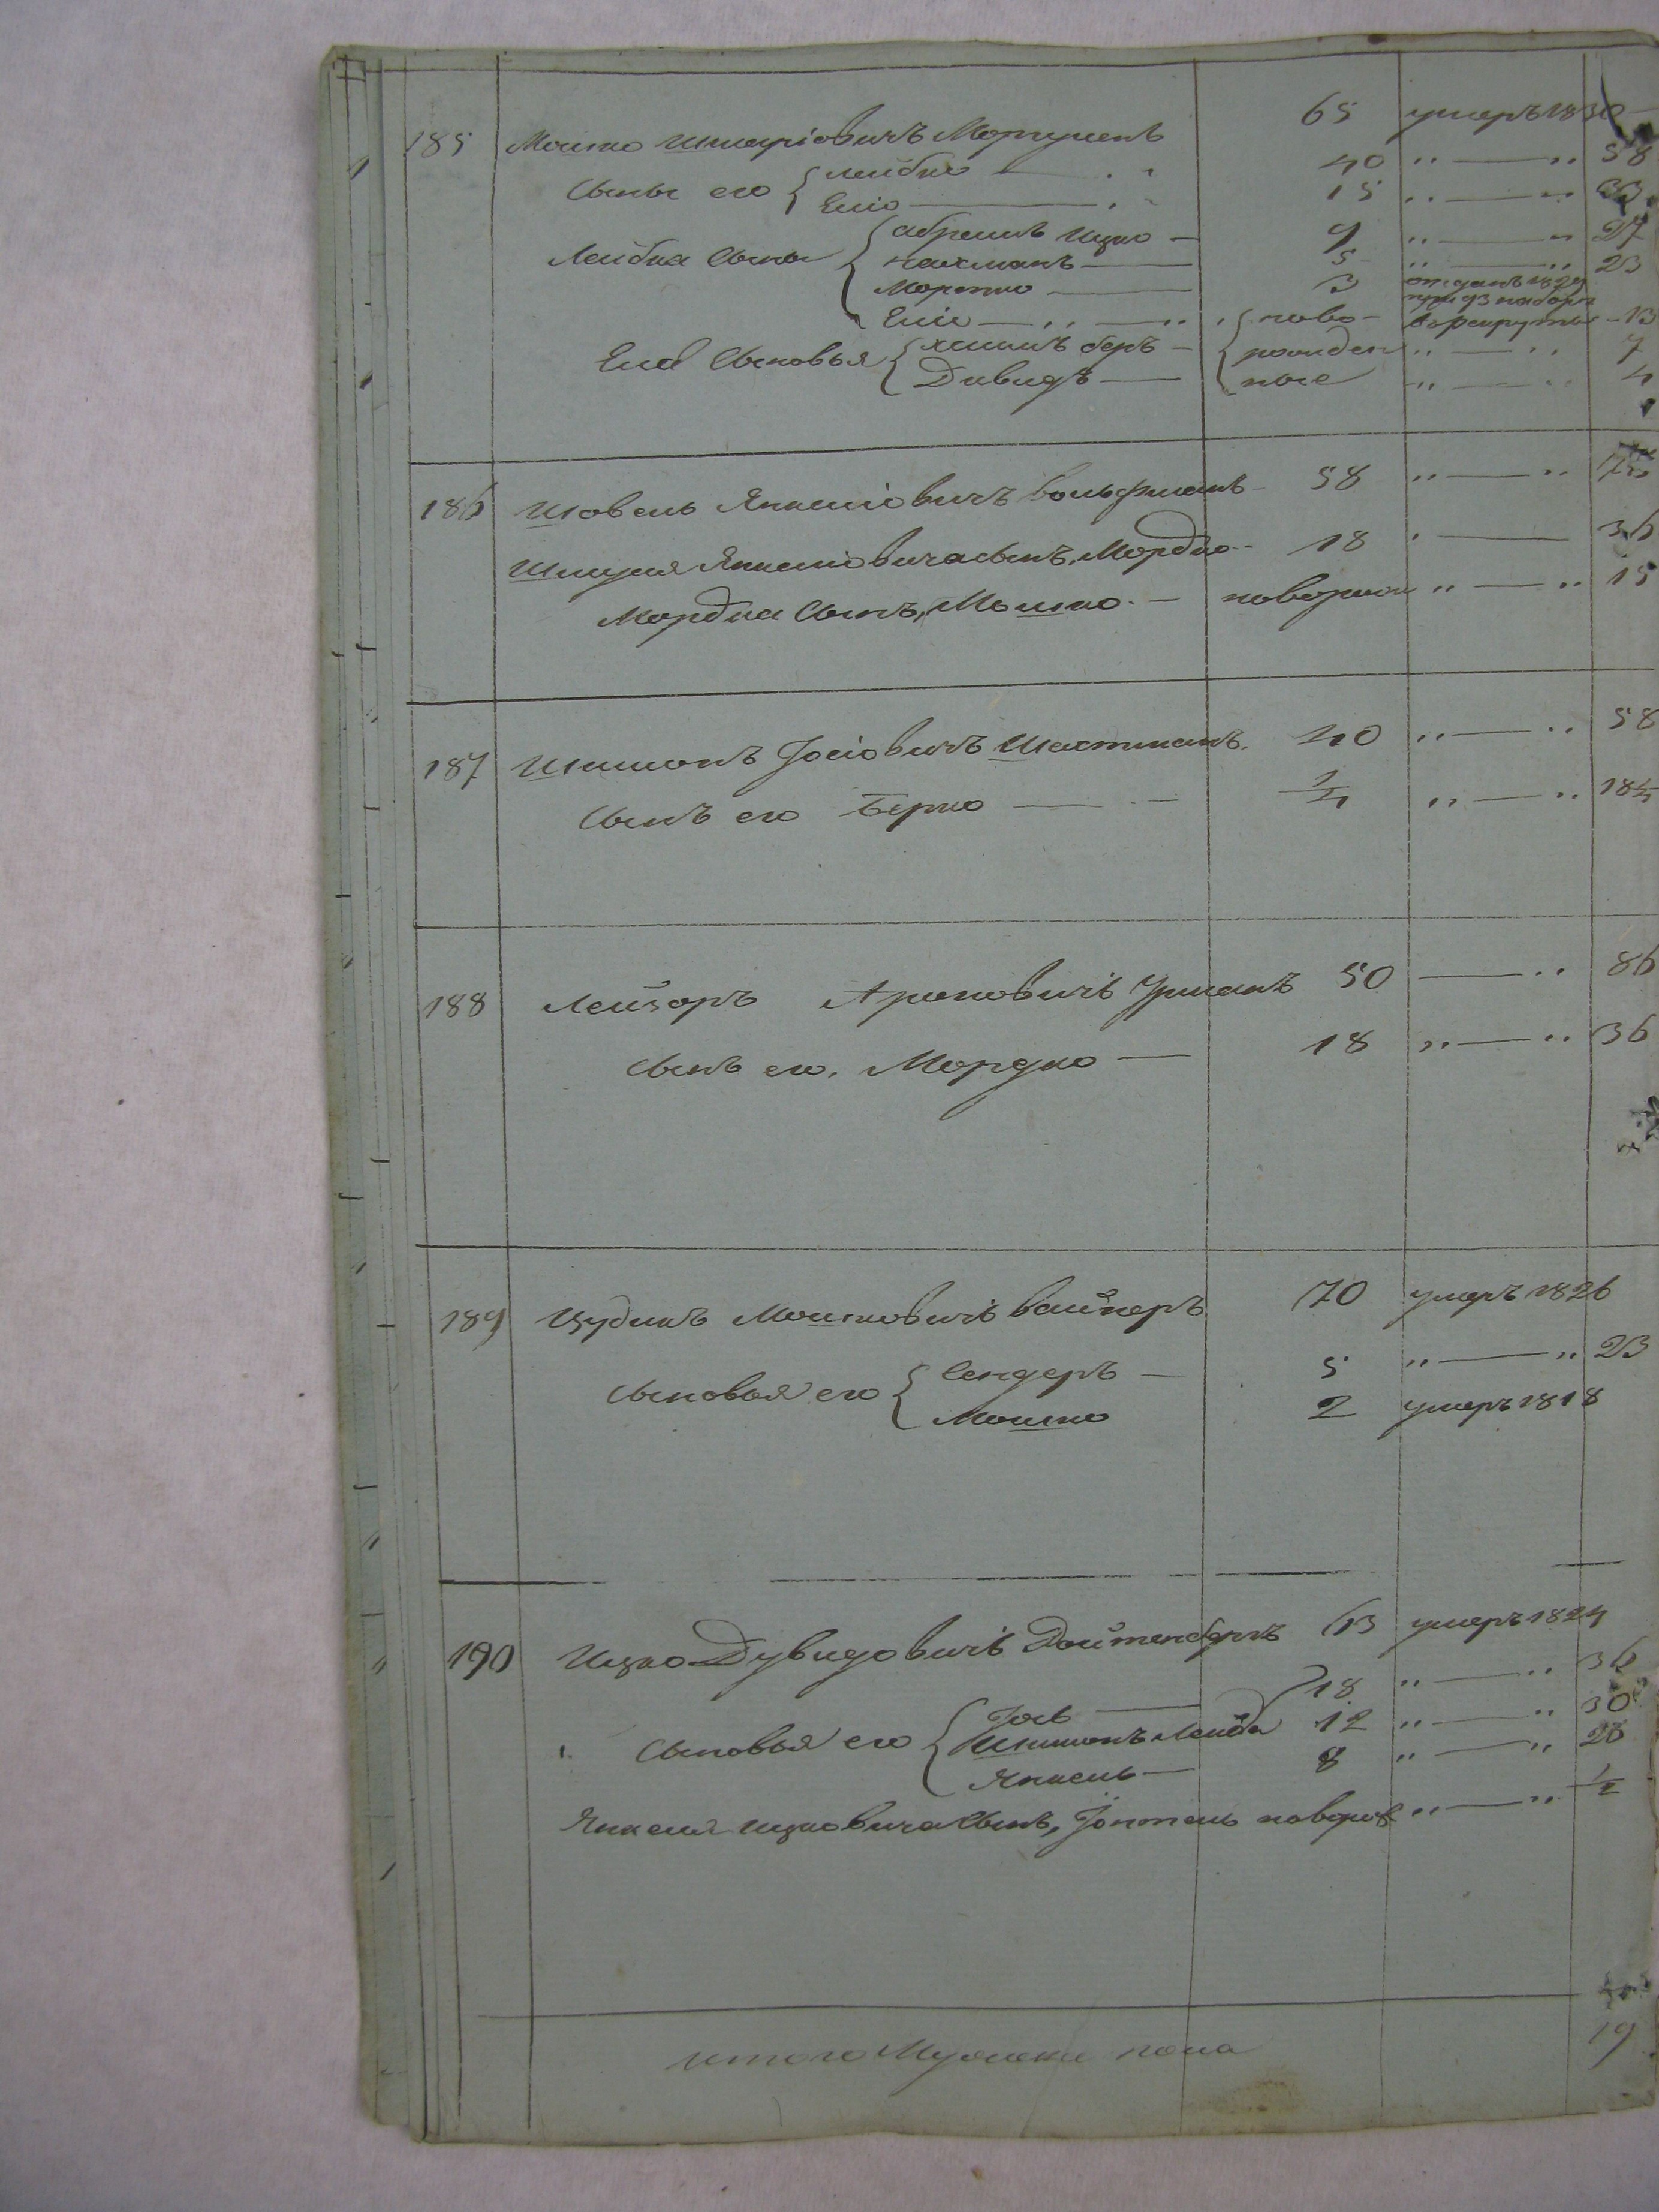 185 Мошко Шмаріовичъ Моргулень 65 умеръ 1830
Сыны его Лейбко 40 „ — „ 58
Еліо 15 „ — „ 33
Лейбка Сыны Абрамъ Ицко — 9 „ — „ 27
Нахманъ — 5 „ — „ 23
Мортко — 3 отданъ 1829
Еліе — „ — „ ново- в рекруты 13
Еля Сыновья Хаимъ беръ — рожден „ — „ 7
Давидъ — ные „ — „ 4
186 Шовель Янкеліовичъ Вольфманъ 58 „ — „
Шмуля Янкеліовича сынъ, Мордко 18 „ — 36
Мордка Сынъ, Мошко — новорож „ — „ 15
187 Шимонъ Іосіовичъ Шахтманъ 40 „ — „ 58
Сынъ его Берко — 1/4 „ — „ 18 1/4
188 Лейзоръ Ароновичъ Урманъ 50 — „ 86
Сынъ его, Мордко — 18 „ — „ 36
189 Изудикъ Мошковичъ Вайнеръ 70 умеръ 1826
Сыновья его Сендеръ — 5 „ — „ 23
Мошко 2 умеръ 1818
190 Ицко Дувидовичъ Дойтенбергъ 63 умеръ 1824
Іось — 18 „ — „ 36
Сыновья его Шимонъ Лейба 12 „ — „ 30
Янкель — 8 „ — „ 26
Янкеля Ицковича Сынъ, Іонтель новорож „ — „ 1/2
итого Мужеска пола 19